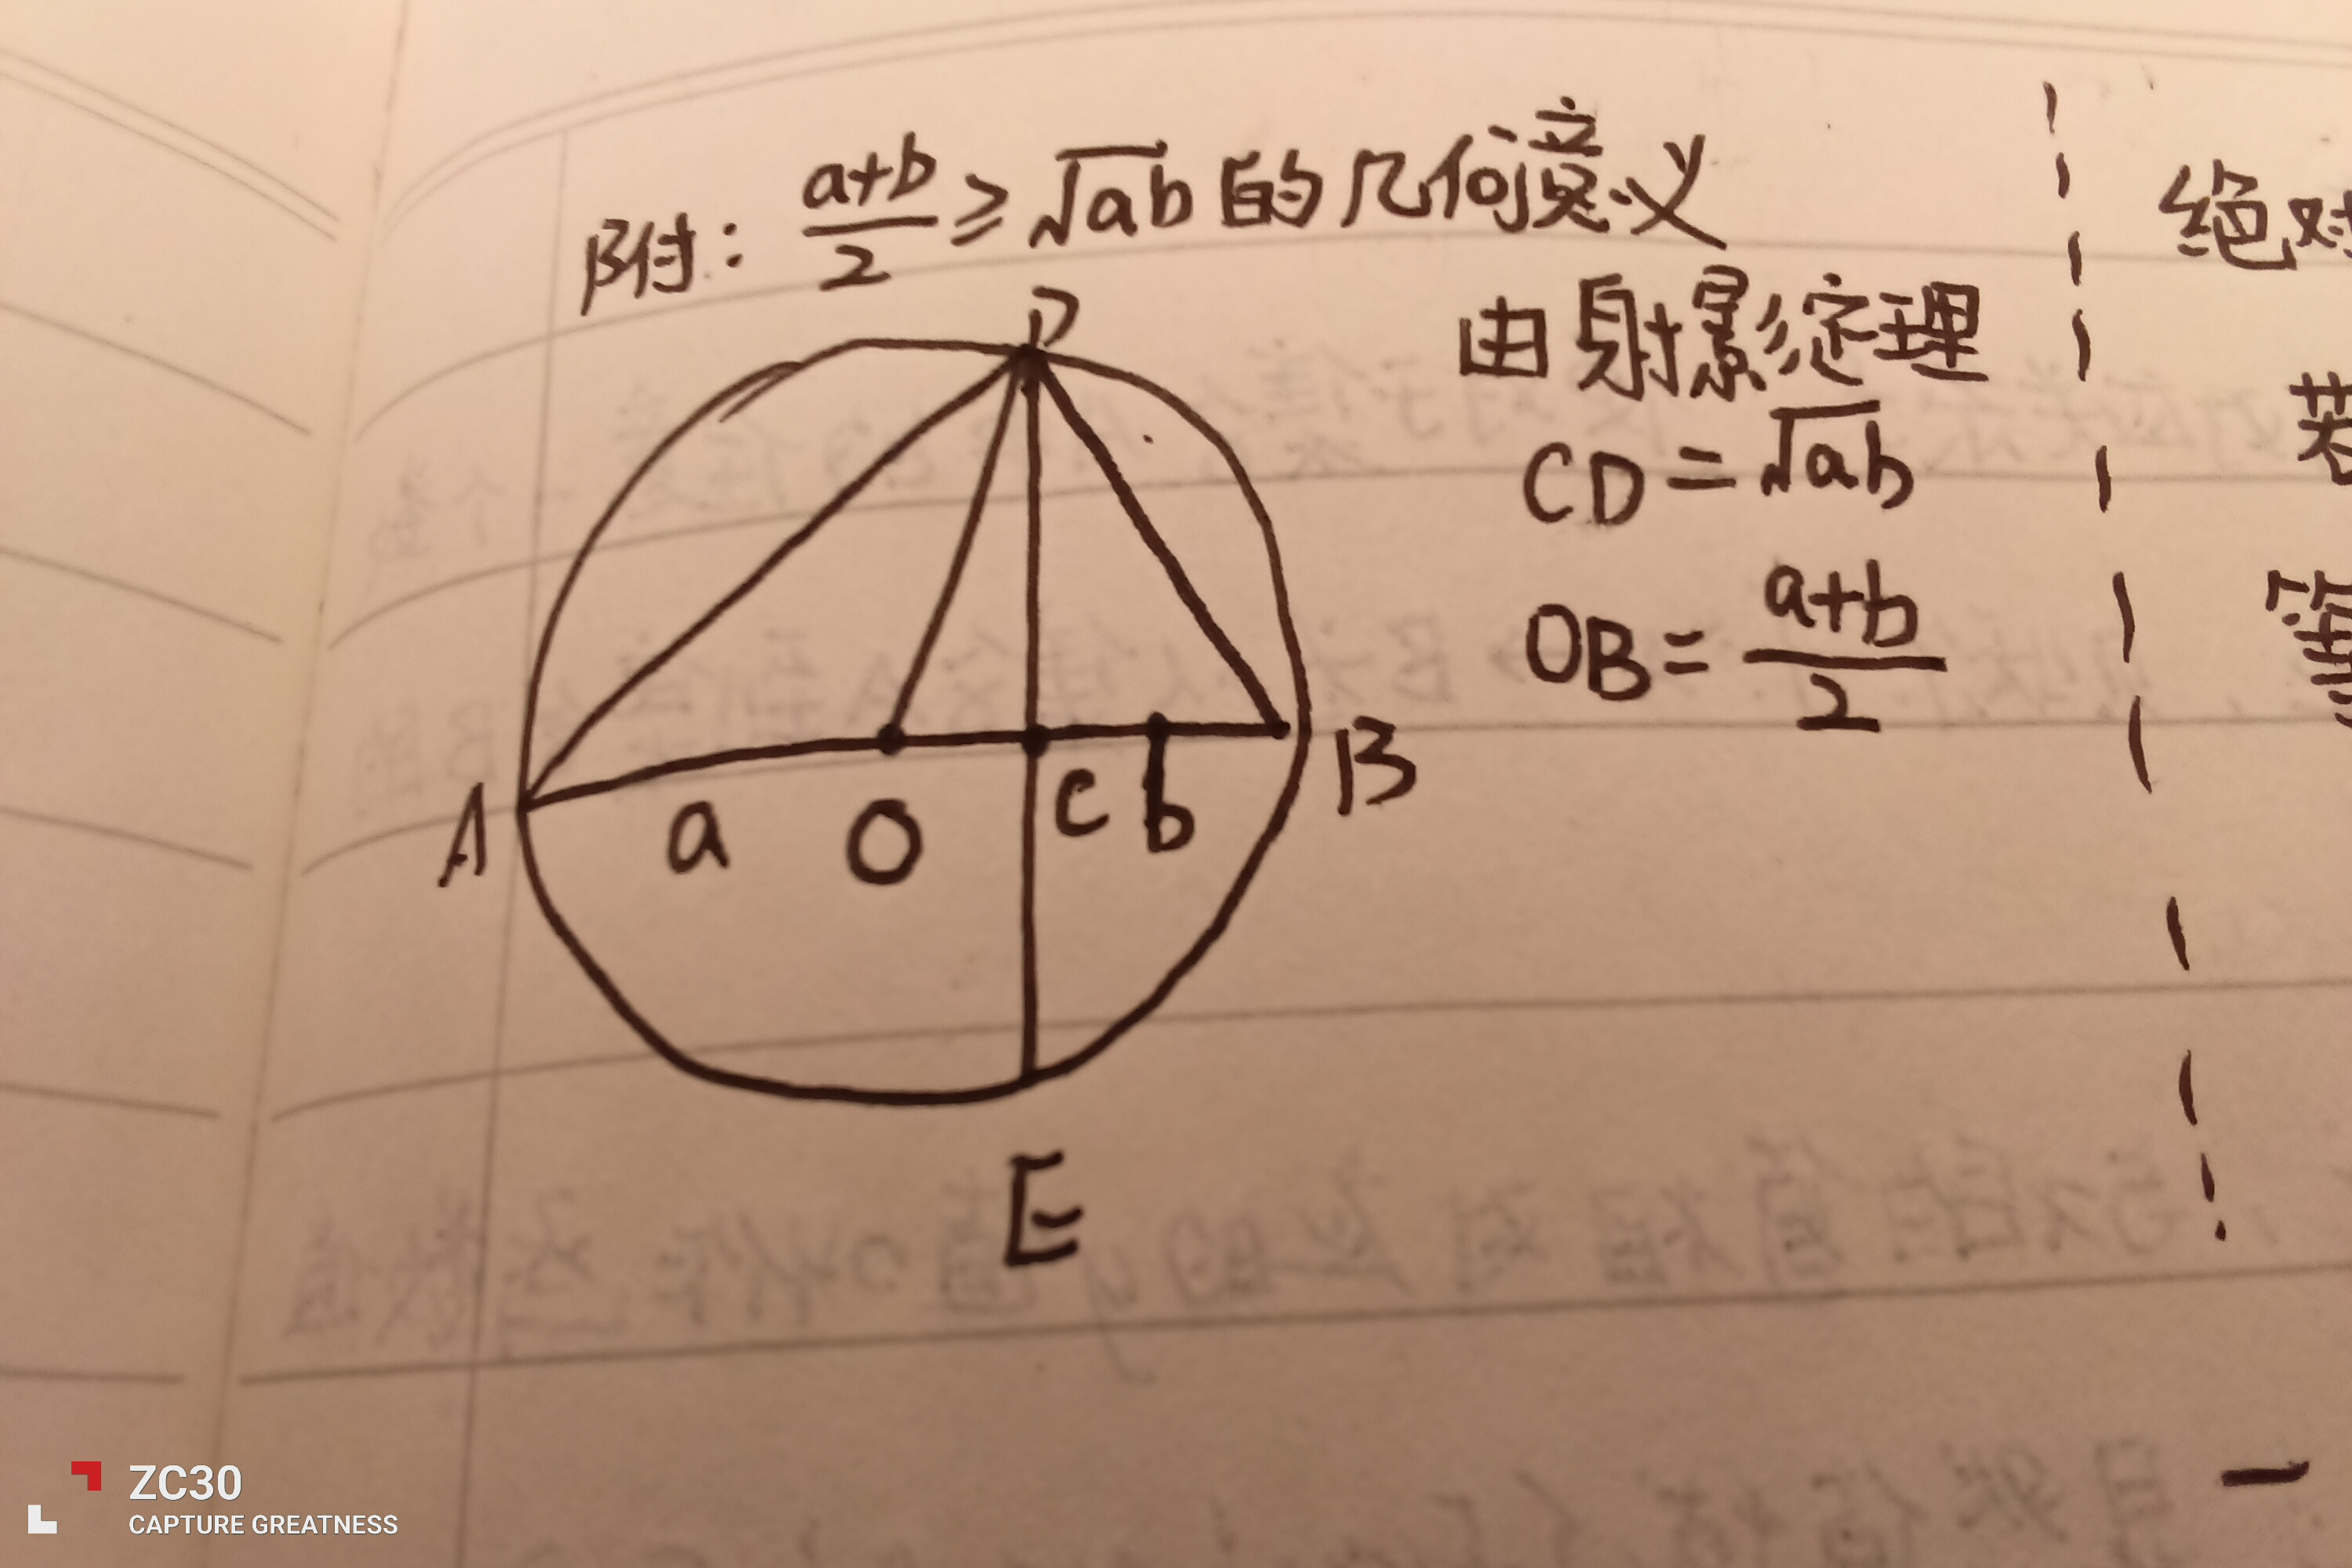 附：a+b/2≥√ab的几何意义
由射影定理
CD=√ab
OB=a+b/2
D
A
a
O
C
b
B
E
绝对
若
ZC30
CAPTURE GREATNESS